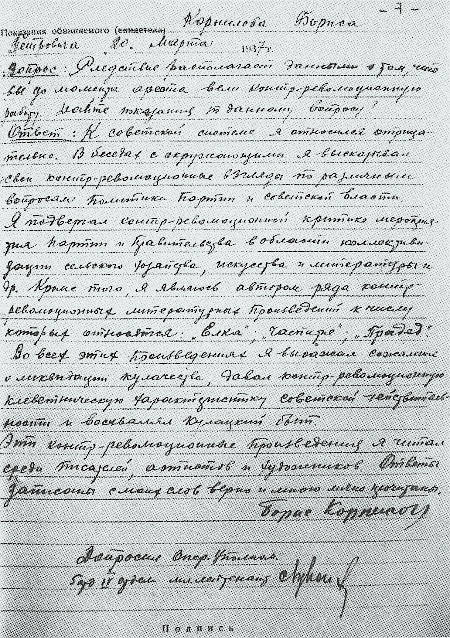 - 7 -
Корнилова Бориса
Показания обвиняемого (свидетеля)
Петровича 20 Марта 1937 г.
Вопрос: Следствие располагает данными о том, что
вы до момента ареста вели контр-революционную
работу. Дайте показания по данному вопросу
Ответ: К советской системе я относился отрица-
тельно. В беседах с окружающими я высказывал
свои контр-революционные взгляды по различным
вопросам политики партии и советской власти
Я подвергал контр-революционной критике мероприя-
тия партии и правительства в области коллективи-
зации сельского хозяйства, искусства и литературы и
др. Кроме того я являюсь автором ряда контр-
революционных литературных произведений к числу
которых относятся "Елка", "Чаепитие", "Прадед".
Во всех этих произведениях я выражал сожаление
о ликвидации кулачества, давал контр-революционную
клеветническую характеристику советской действитель-
ности и восхвалял кулацкий быт.
Эти контр-революционные произведения я читал
среди писателей, артистов и художников Ответы
записаны с моих слов верно и мною лично прочитаны.
Борис Корнилов
Допросил Опер. Уполном.
IV отдел мл лейтенант
Подпись